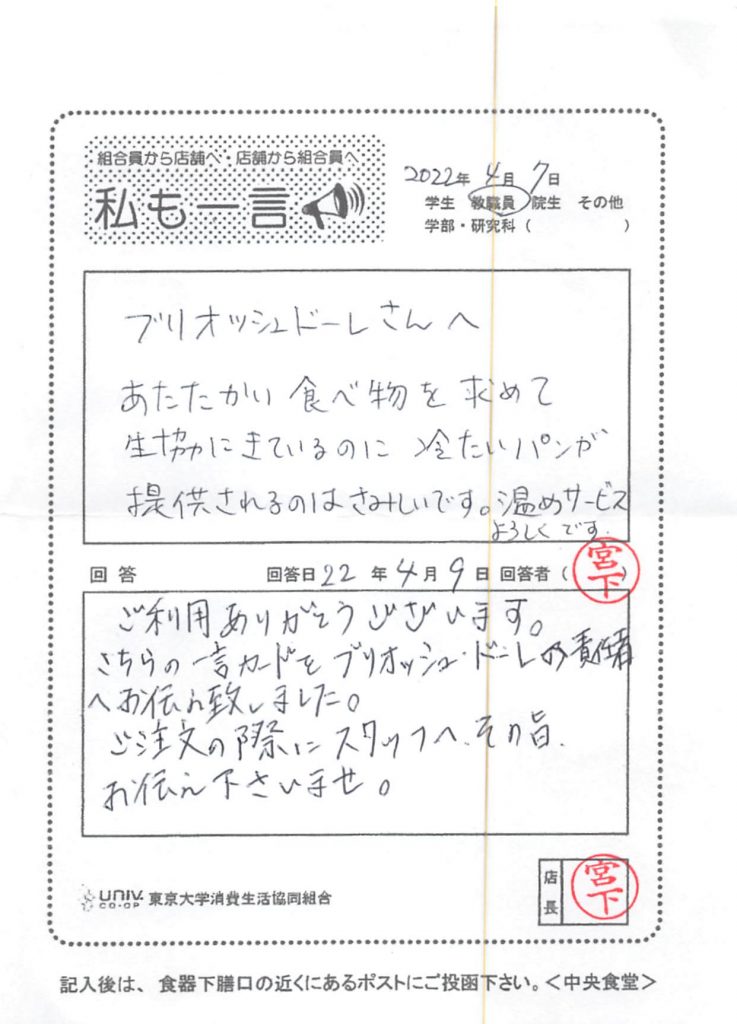 組合員から店舗へ・店舗から組合員へ
私も一言
2022年 4月 7日
学生 教職員 院生 その他
学部・研究科（ ）
ブリオッシュドーレさんへ
あたたかい食べ物を求めて
生協にきているのに冷たいパンが
提供されるのはさみしいです。温めサービス
よろしくです
回答 回答日22年4月9日 回答者（宮下）
ご利用ありがとうございます。
こちらの一言カードをブリオッシュ・ドーレの責任者
へお伝え致しました。
ご注文の際にスタッフへ、その旨、
お伝え下さいませ。
UNIV. CO-OP 東京大学消費生活協同組合
店長 宮下
記入後は、食器下膳口の近くにあるポストにご投函下さい。＜中央食堂＞